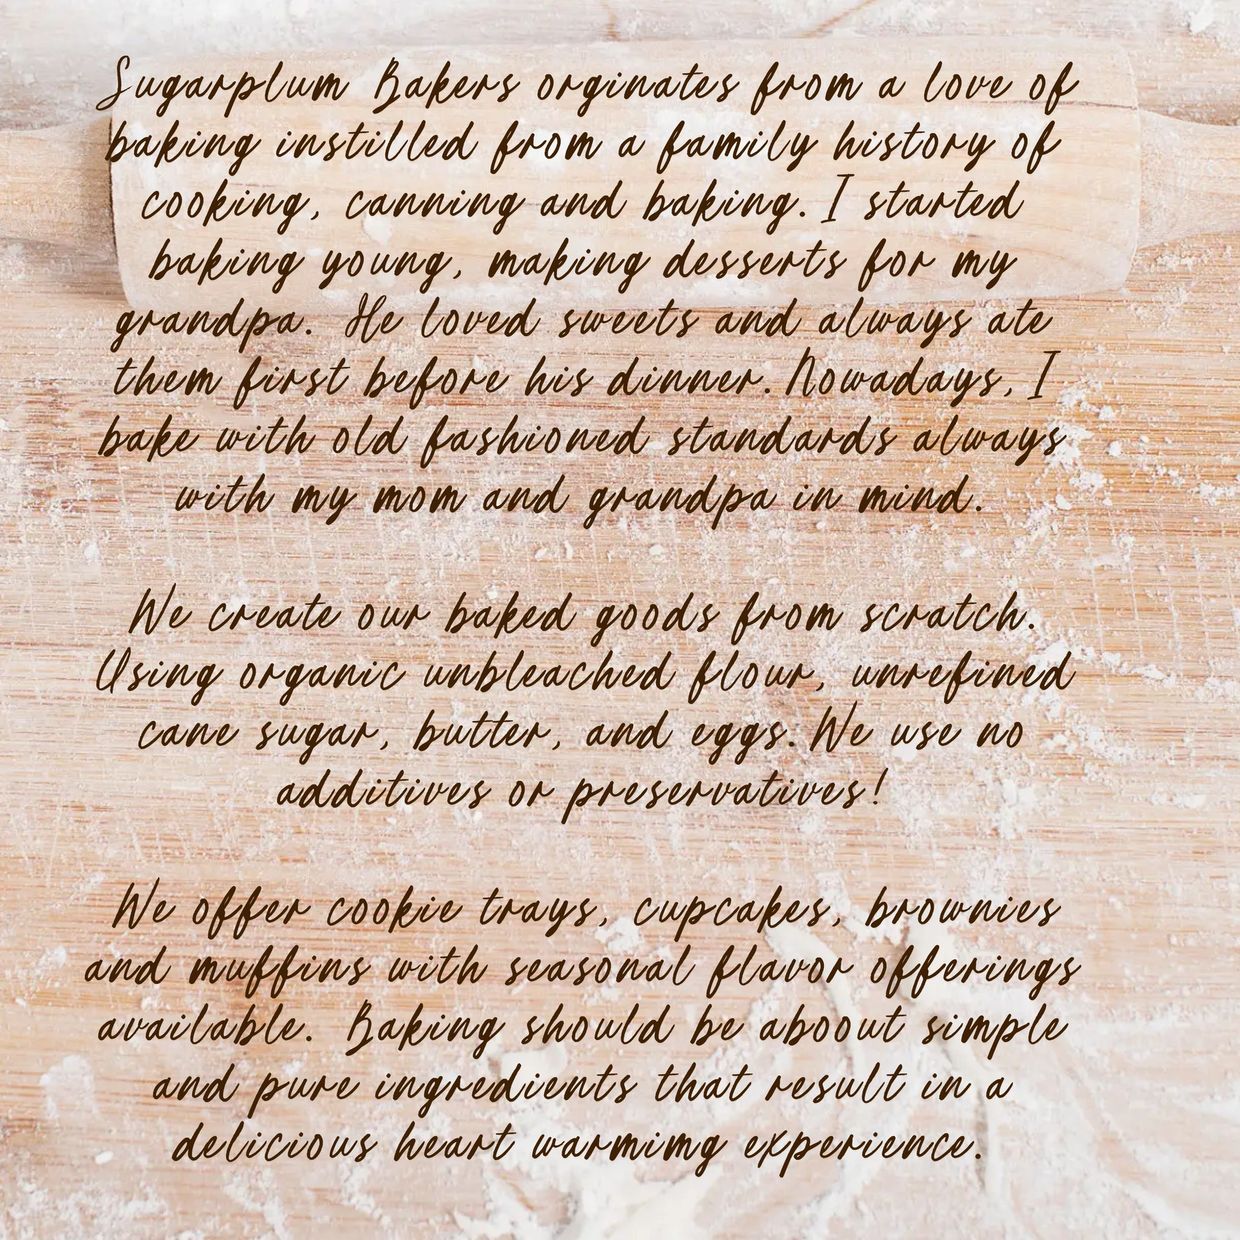 Sugarplum Bakers orginates from a love of
baking instilled from a family history of
cooking, canning and baking. I started
baking young, making desserts for my
grandpa. He loved sweets and always ate
them first before his dinner. Nowadays, I
bake with old fashioned standards always
with my mom and grandpa in mind.
We create our baked goods from scratch.
Using organic unbleached flour, unrefined
cane sugar, butter, and eggs. We use no
additives or preservatives!
We offer cookie trays, cupcakes, brownies
and muffins with seasonal flavor offerings
available. Baking should be aboout simple
and pure ingredients that result in a
delicious heart warmimg experience.